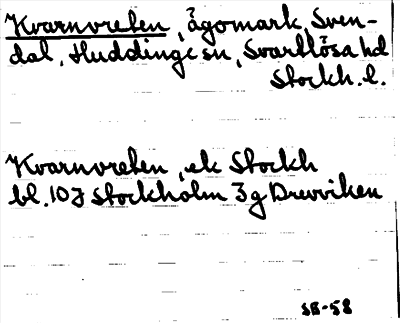 Kvarnvreten, ägomark, Sven-
dal, Huddinge sn, Svartlösa hd
Stockh. l.
Kvarnvreten, ek Stockh
bl. 10J Stockholm 3g Drevviken
SB-58